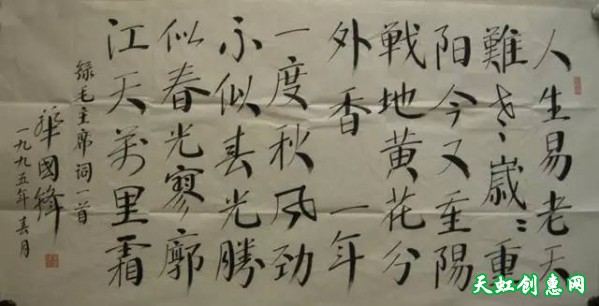 人生易老天
難老歲〻重
陽今又重陽
戰地黃花分
外香 一年
一度秋风劲
不似春光勝
似春光寥廓
江天萬里霜
録毛主席词一首
華國鋒
一九九五年春月
天虹创惠网